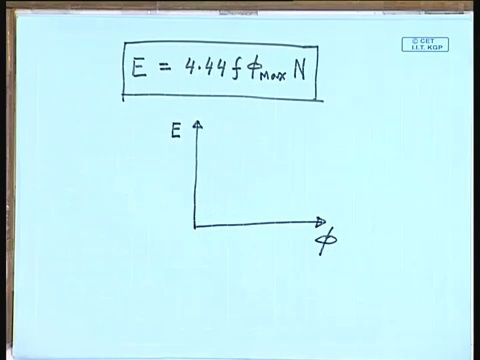 © CET
I.I.T. KGP
E = 4.44 f ϕmax N
E
ϕ